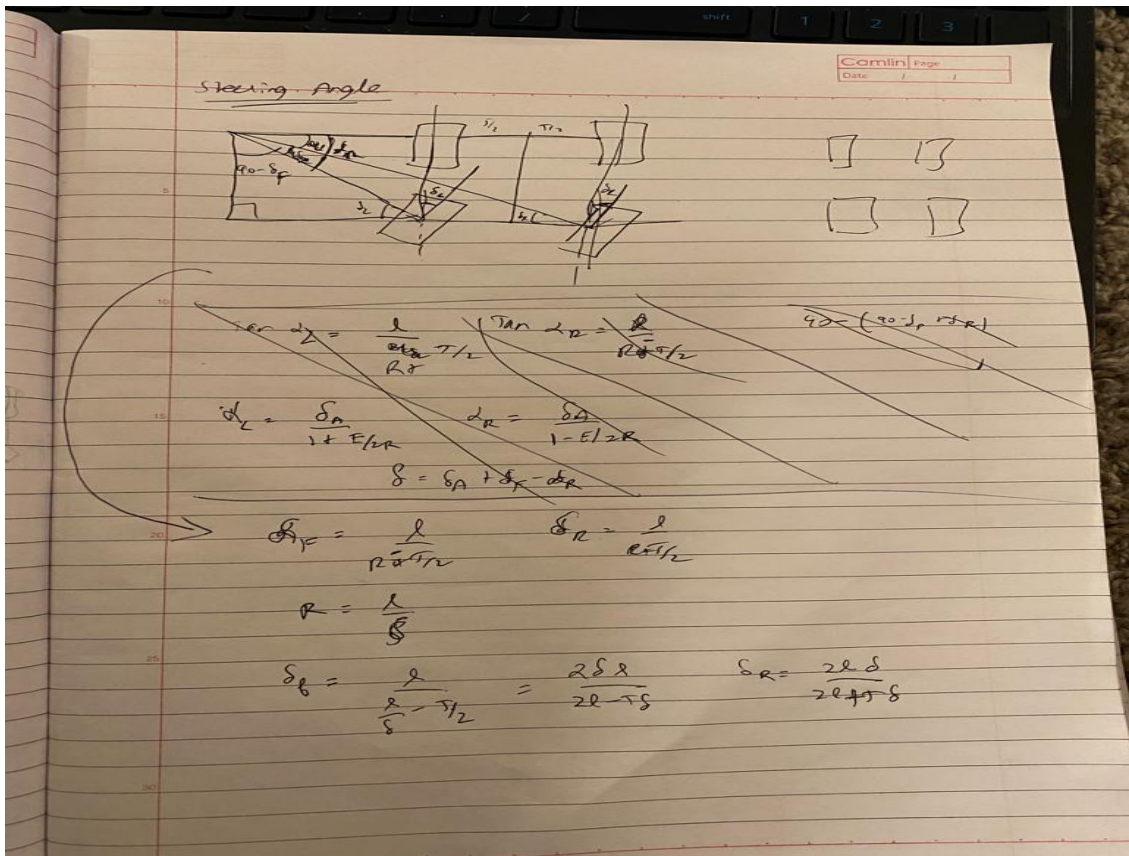 shift
1 2 3
Camlin Page
Date / /
Steering Angle
T/2 T/2
90-δ_F
5
δ_L δ_L
10
Tan α_L = l / (R+ T/2) Tan α_R = l / (R - T/2) 90 - (90-δ_F + δ_R)
15
α_L = δ_A / (1 + E/2R) α_R = δ_A / (1 - E/2R)
δ = δ_A + α_F - α_R
20
δ_F = l / (R - T/2) δ_R = l / (R + T/2)
R = l / δ
25
δ_f = l / (l/δ - T/2) = 2δl / (2l - Tδ) δ_R = 2lδ / (2l + Tδ)
30